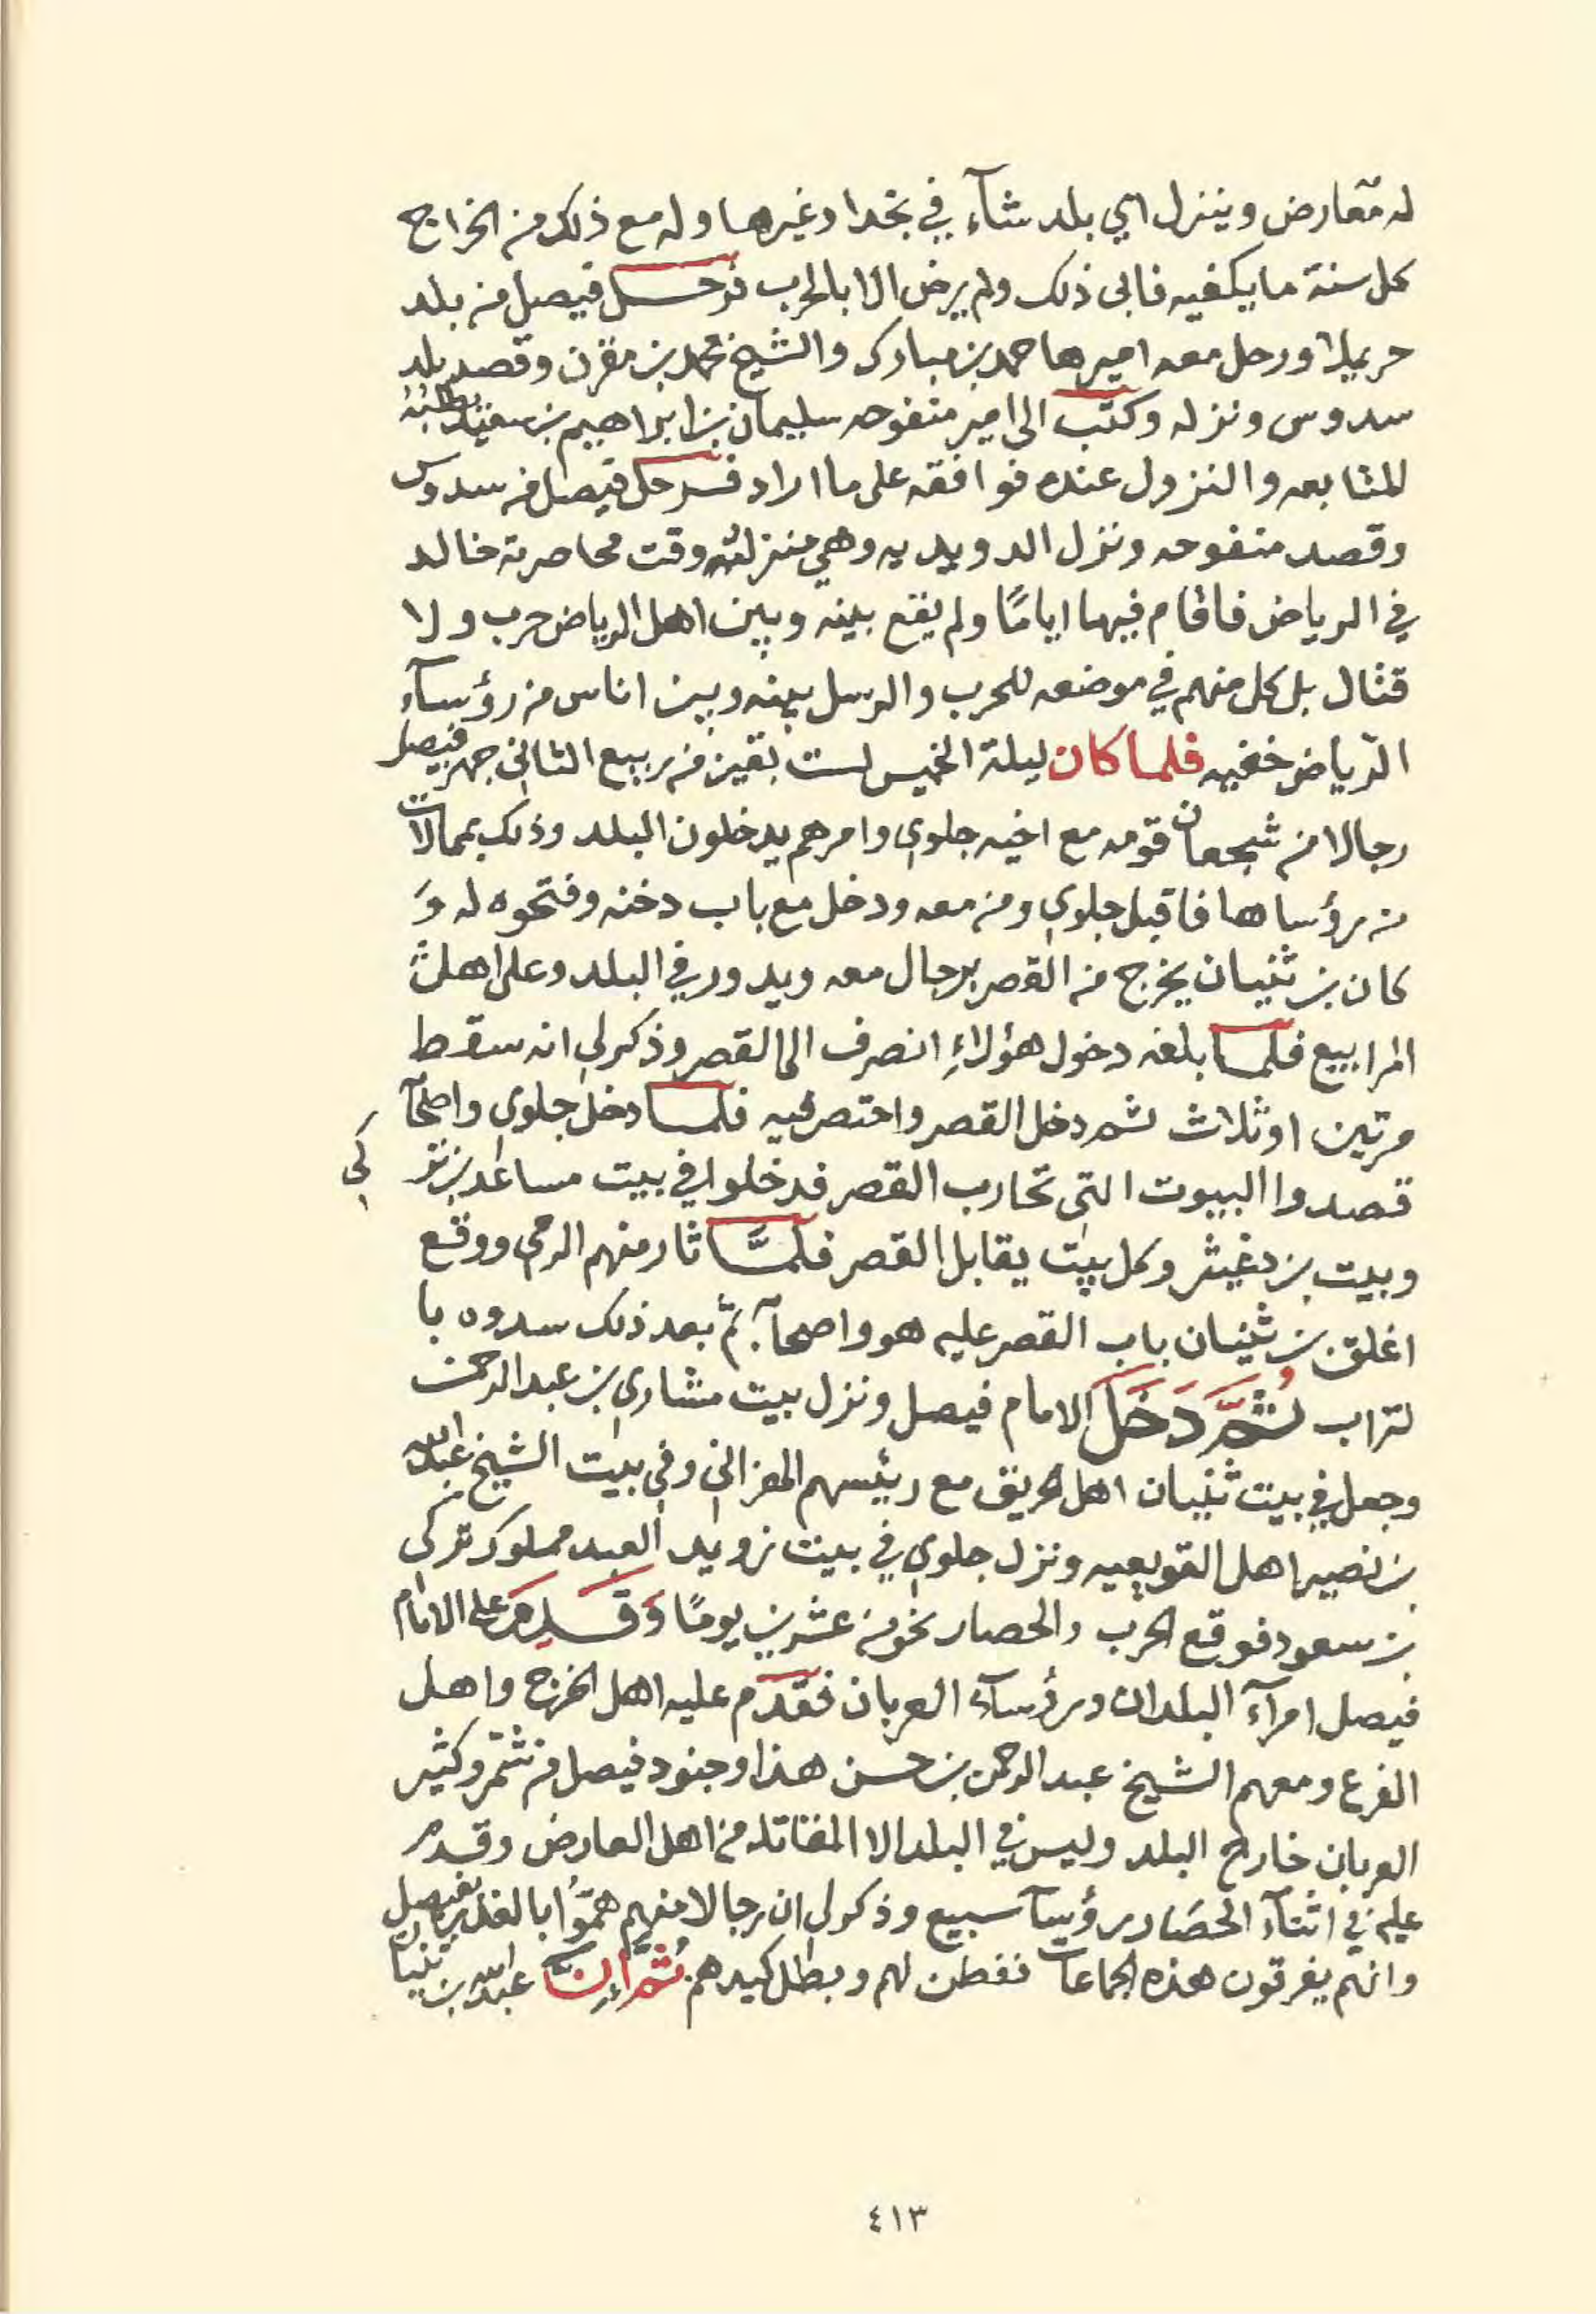 له معارض وينزل اي بلد شآء في نجد او غيرها وله مع ذلك من الخراج
كل سنة ما يكفيه فابى ذلك ولم يرض الا بالحرب فرحل فيصل من بلد
حريملا ورحل معه اميرها حمد بن مبارك والشيخ محمد بن مقرن وقصد بلد
سدوس ونزله وكتب الى امير منفوحه سليمان بن ابراهيم بن سعيد يطلبه
المتابعه والنزول عنده فوافقه على ما اراد فرحل فيصل من سدوس
وقصد منفوحه ونزل الدويديه وهي منزلته وقت محاصرته خالد
في الرياض فاقام فيها اياما ولم يقع بينه وبين اهل الرياض حرب ولا
قتال بل كل منهم في موضعه للحرب والرسل بينه وبين اناس من رؤسآء
الرياض خفيه فلما كان ليلة الخميس لست بقين من ربيع الثاني جهز فيصل
رجالا من شجعان قومه مع اخيه جلوي وامرهم يدخلون البلد وذلك بممالات
من رؤساها فاقبل جلوي ومن معه ودخل مع باب دخنه وفتحوه له و
كان بن ثنيان يخرج من القصر برجال معه ويدور في البلد وعلى اهل
المرابيع فلما بلغه دخول هؤلاء انصرف الى القصر وذكر لي انه سقط
مرتين او ثلاث ثم دخل القصر واحتصر فيه فلما دخل جلوي واصحآ
قصدوا البيوت التي تحارب القصر فدخلوا في بيت مساعد بن تر كي
وبيت بن دغيثر وكل بيت يقابل القصر فلمّا ثار منهم الرمى ووقع
اغلق بن ثنيان باب القصر عليه هو واصحآبه ثم بعد ذلك سدوه با
لتراب ثُمَّ دَخَلَ الامام فيصل ونزل بيت مشاري بن عبد الرحمن
وجعل في بيت ثنيان اهل الحريق مع رئيسهم الهزاني وفي بيت الشيخ عبد الله
بن نصير اهل القويعيه ونزل جلوي في بيت زويد العبد مملوك تركي
بن سعود فوقع الحرب والحصار نحو من عشرين يومًا وَقَدِمَ على الامام
فيصل امرآء البلدان ورؤسآء العربان فقدم عليه اهل الخرج واهل
الفرع ومعهم الشيخ عبد الرحمن بن حسن هذا وجنود فيصل من شمر وكثير
العربان خارج البلد وليس في البلد الا المقاتله من اهل العارض وقدم
عليه في اثنآء الحصار رؤسآ سبيع وذكر لي ان رجالا منهم همّوا بالغدر بفيصل
وانهم يفرقون هذه الجماعات ففطن لهم وبطل كيدهم ثُمَّ اِنَّ عبد الله بن ثنيان
٤١٣